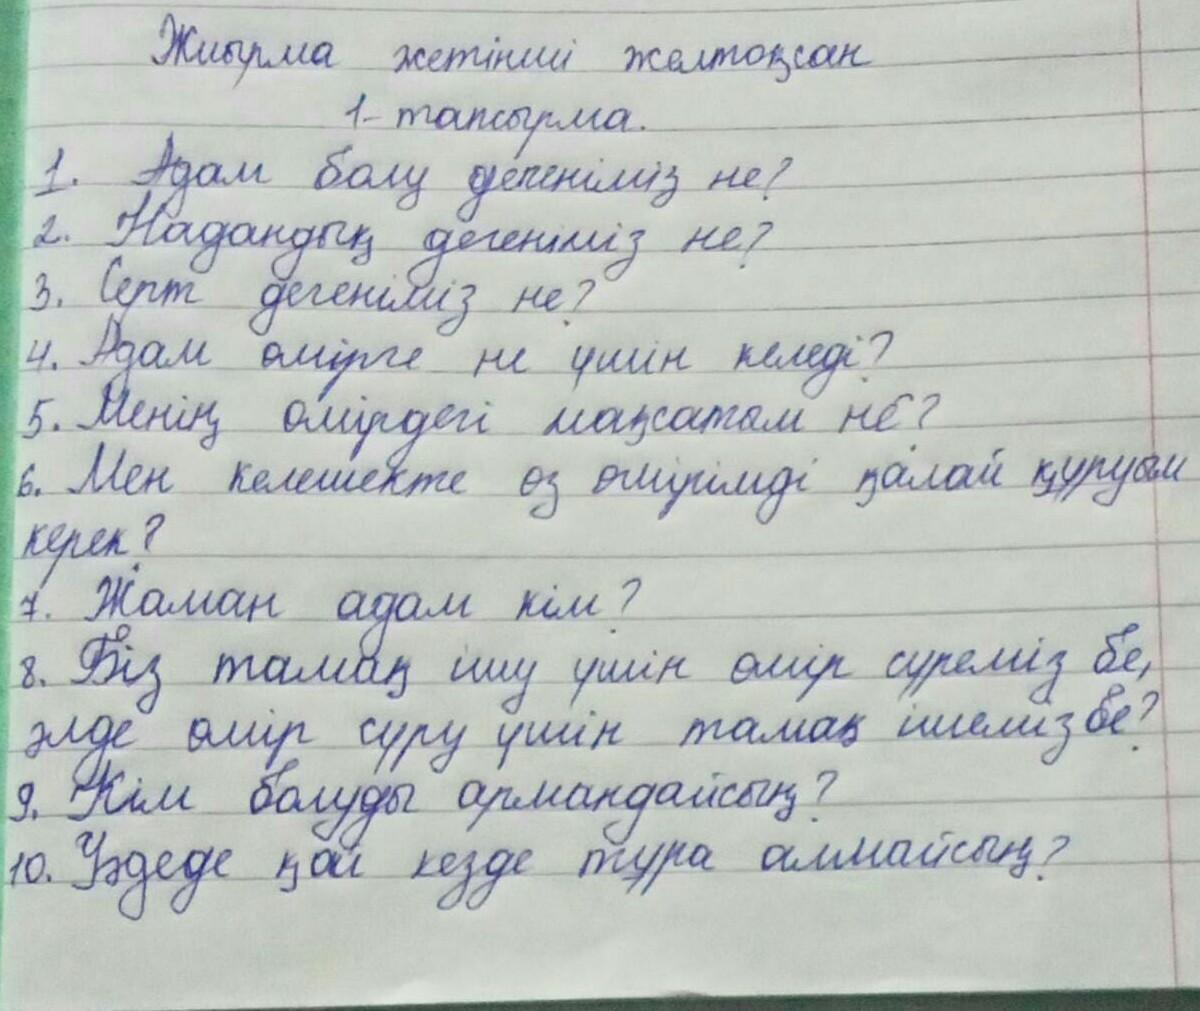 Жиырма жетінші желтоқсан
1- тапсырма.
1. Адам болу дегеніміз не?
2. Надандық дегеніміз не?
3. Серт дегеніміз не?
4. Адам өмірге не үшін келеді?
5. Менің өмірдегі мақсатым не?
6. Мен келешекте өз өмірімді қалай құруым
керек?
7. Жаман адам кім?
8. Біз тамақ ішу үшін өмір сүреміз бе,
әлде өмір сүру үшін тамақ ішеміз бе?
9. Кім болуды армандайсың?
10. Уәдеде қай кезде тұра алмайсың?